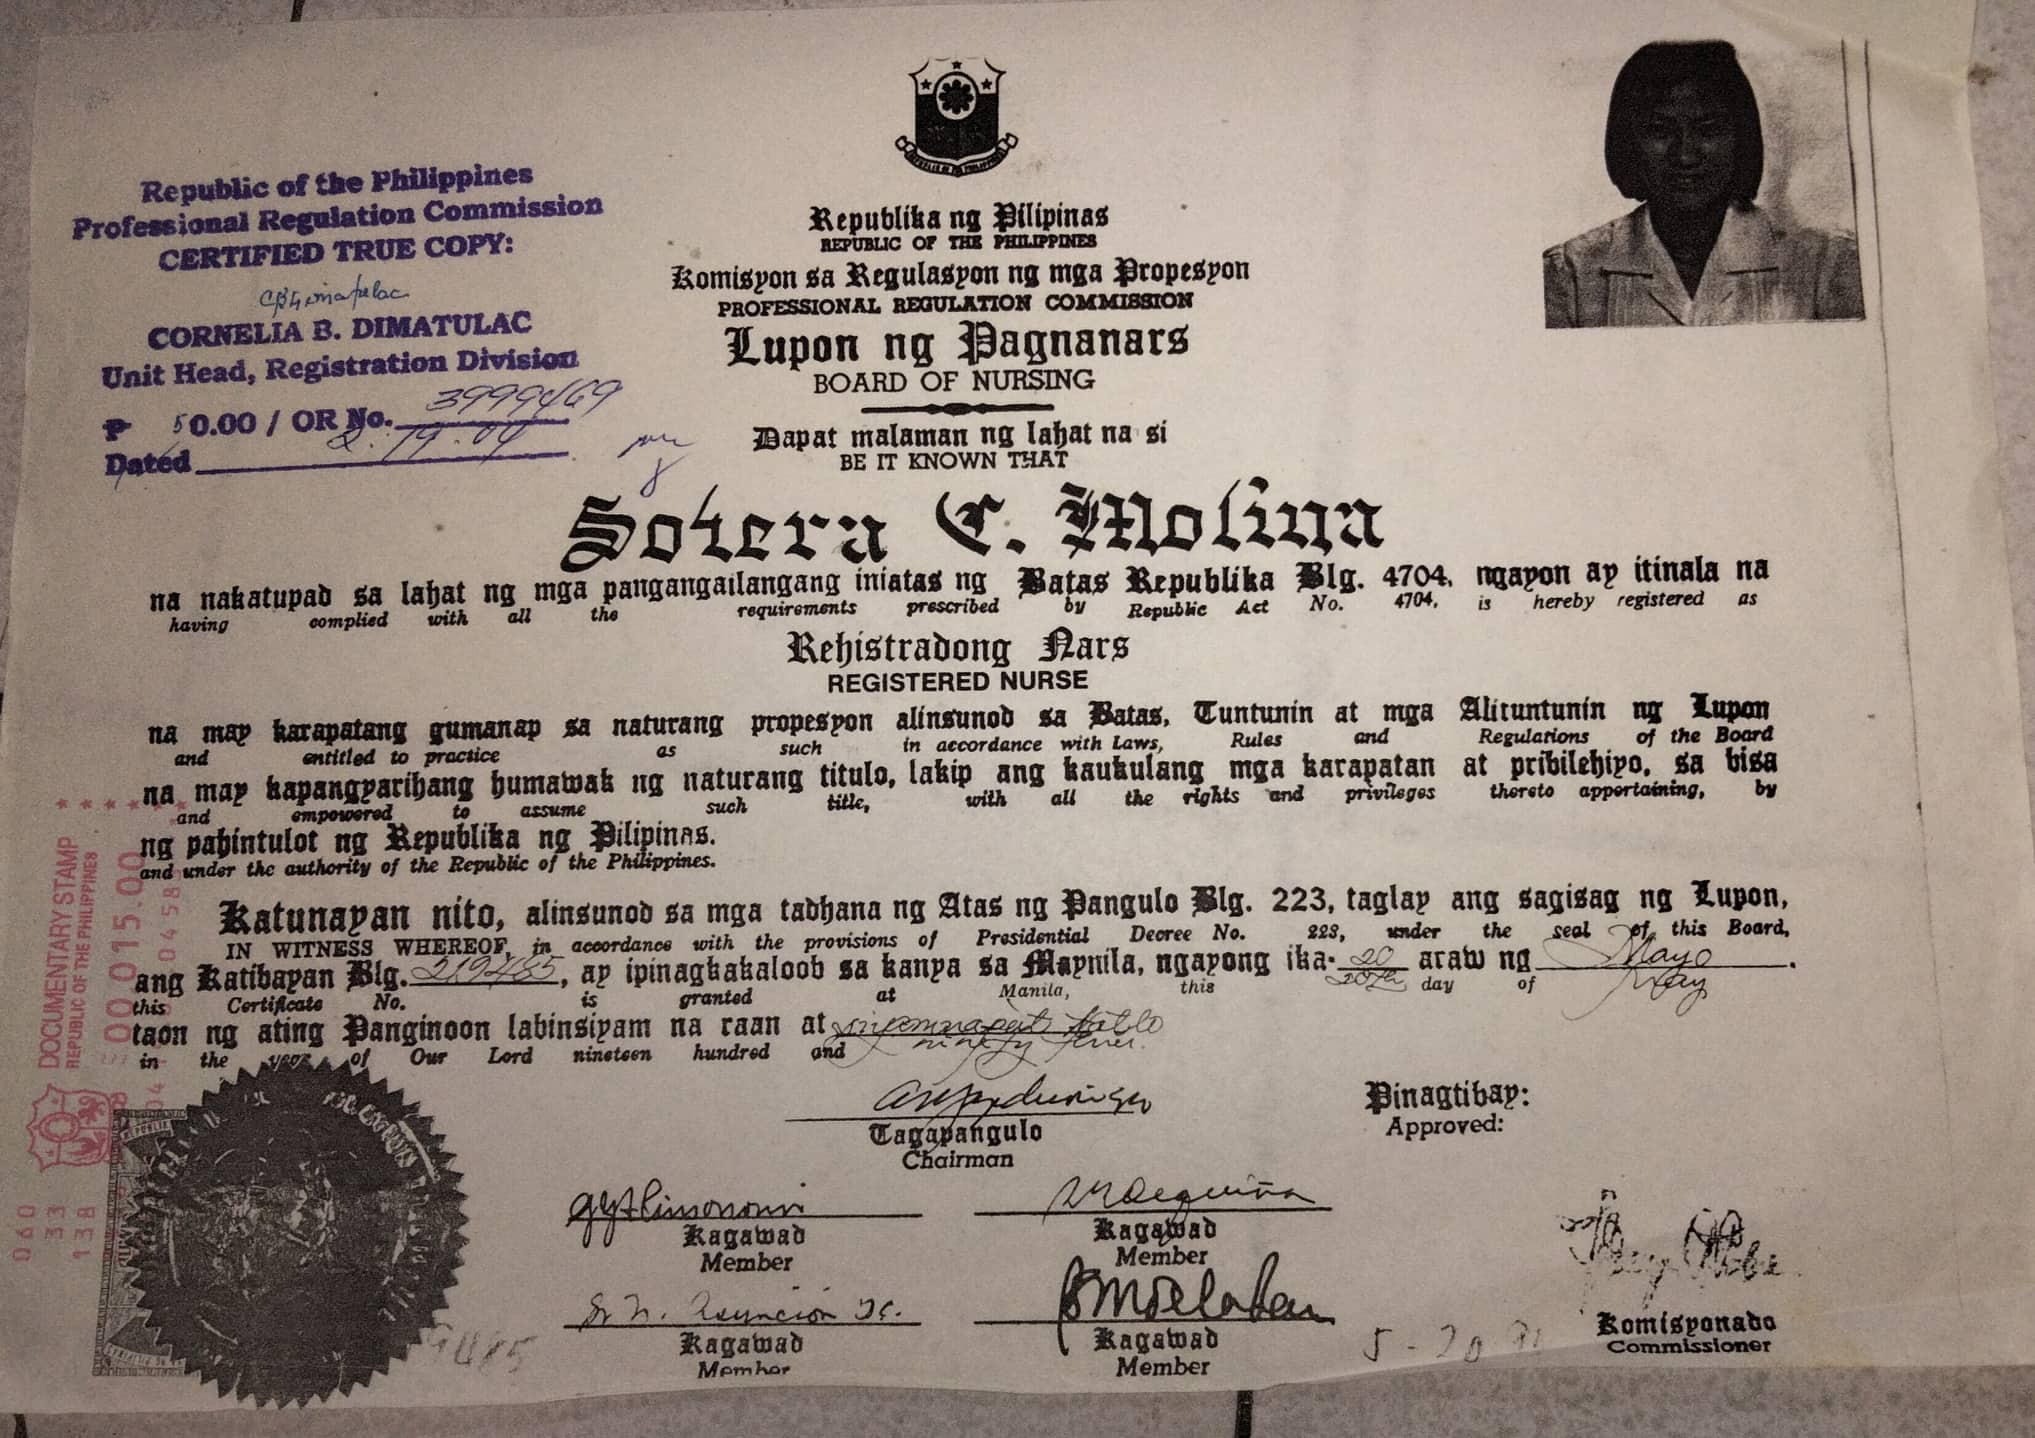 Republic of the Philippines
Professional Regulation Commission
CERTIFIED TRUE COPY:
CORNELIA B. DIMATULAC
Unit Head, Registration Division
₱ 50.00 / OR No. 3999469
Dated 2.19.04
REPUBLIC OF THE PHILIPPINES
Republika ng Pilipinas
REPUBLIC OF THE PHILIPPINES
Komisyon sa Regulasyon ng mga Propesyon
PROFESSIONAL REGULATION COMMISSION
Lupon ng Pagnanars
BOARD OF NURSING
Dapat malaman ng lahat na si
BE IT KNOWN THAT
Sotera C. Molina
na nakatupad sa lahat ng mga pangangailangang iniatas ng Batas Republika Blg. 4704, ngayon ay itinala na
having complied with all the requirements prescribed by Republic Act No. 4704, is hereby registered as
Rehistradong Nars
REGISTERED NURSE
na may karapatang gumanap sa naturang propesyon alinsunod sa Batas, Tuntunin at mga Alituntunin ng Lupon
and entitled to practice as such in accordance with Laws, Rules and Regulations of the Board
na may kapangyarihang humawak ng naturang titulo, lakip ang kaukulang mga karapatan at pribilehiyo, sa bisa
and empowered to assume such title, with all the rights and privileges thereto appertaining, by
ng pahintulot ng Republika ng Pilipinas.
and under the authority of the Republic of the Philippines.
Katunayan nito, alinsunod sa mga tadhana ng Atas ng Pangulo Blg. 223, taglay ang sagisag ng Lupon,
IN WITNESS WHEREOF, in accordance with the provisions of Presidential Decree No. 223, under the seal of this Board,
ang Katibayan Blg. 219485, ay ipinagkakaloob sa kanya sa Maynila, ngayong ika- 20 araw ng Mayo.
this Certificate No. is granted at Manila, this 20th day of May
taon ng ating Panginoon labinsiyam na raan at
in the year of Our Lord nineteen hundred and ninety
Tagapangulo
Chairman
Pinagtibay:
Approved:
Kagawad
Member
Kagawad
Member
Kagawad
Member
Kagawad
Member
Komisyonado
Commissioner
DOCUMENTARY STAMP
REPUBLIC OF THE PHILIPPINES
00015.00
060
33
138